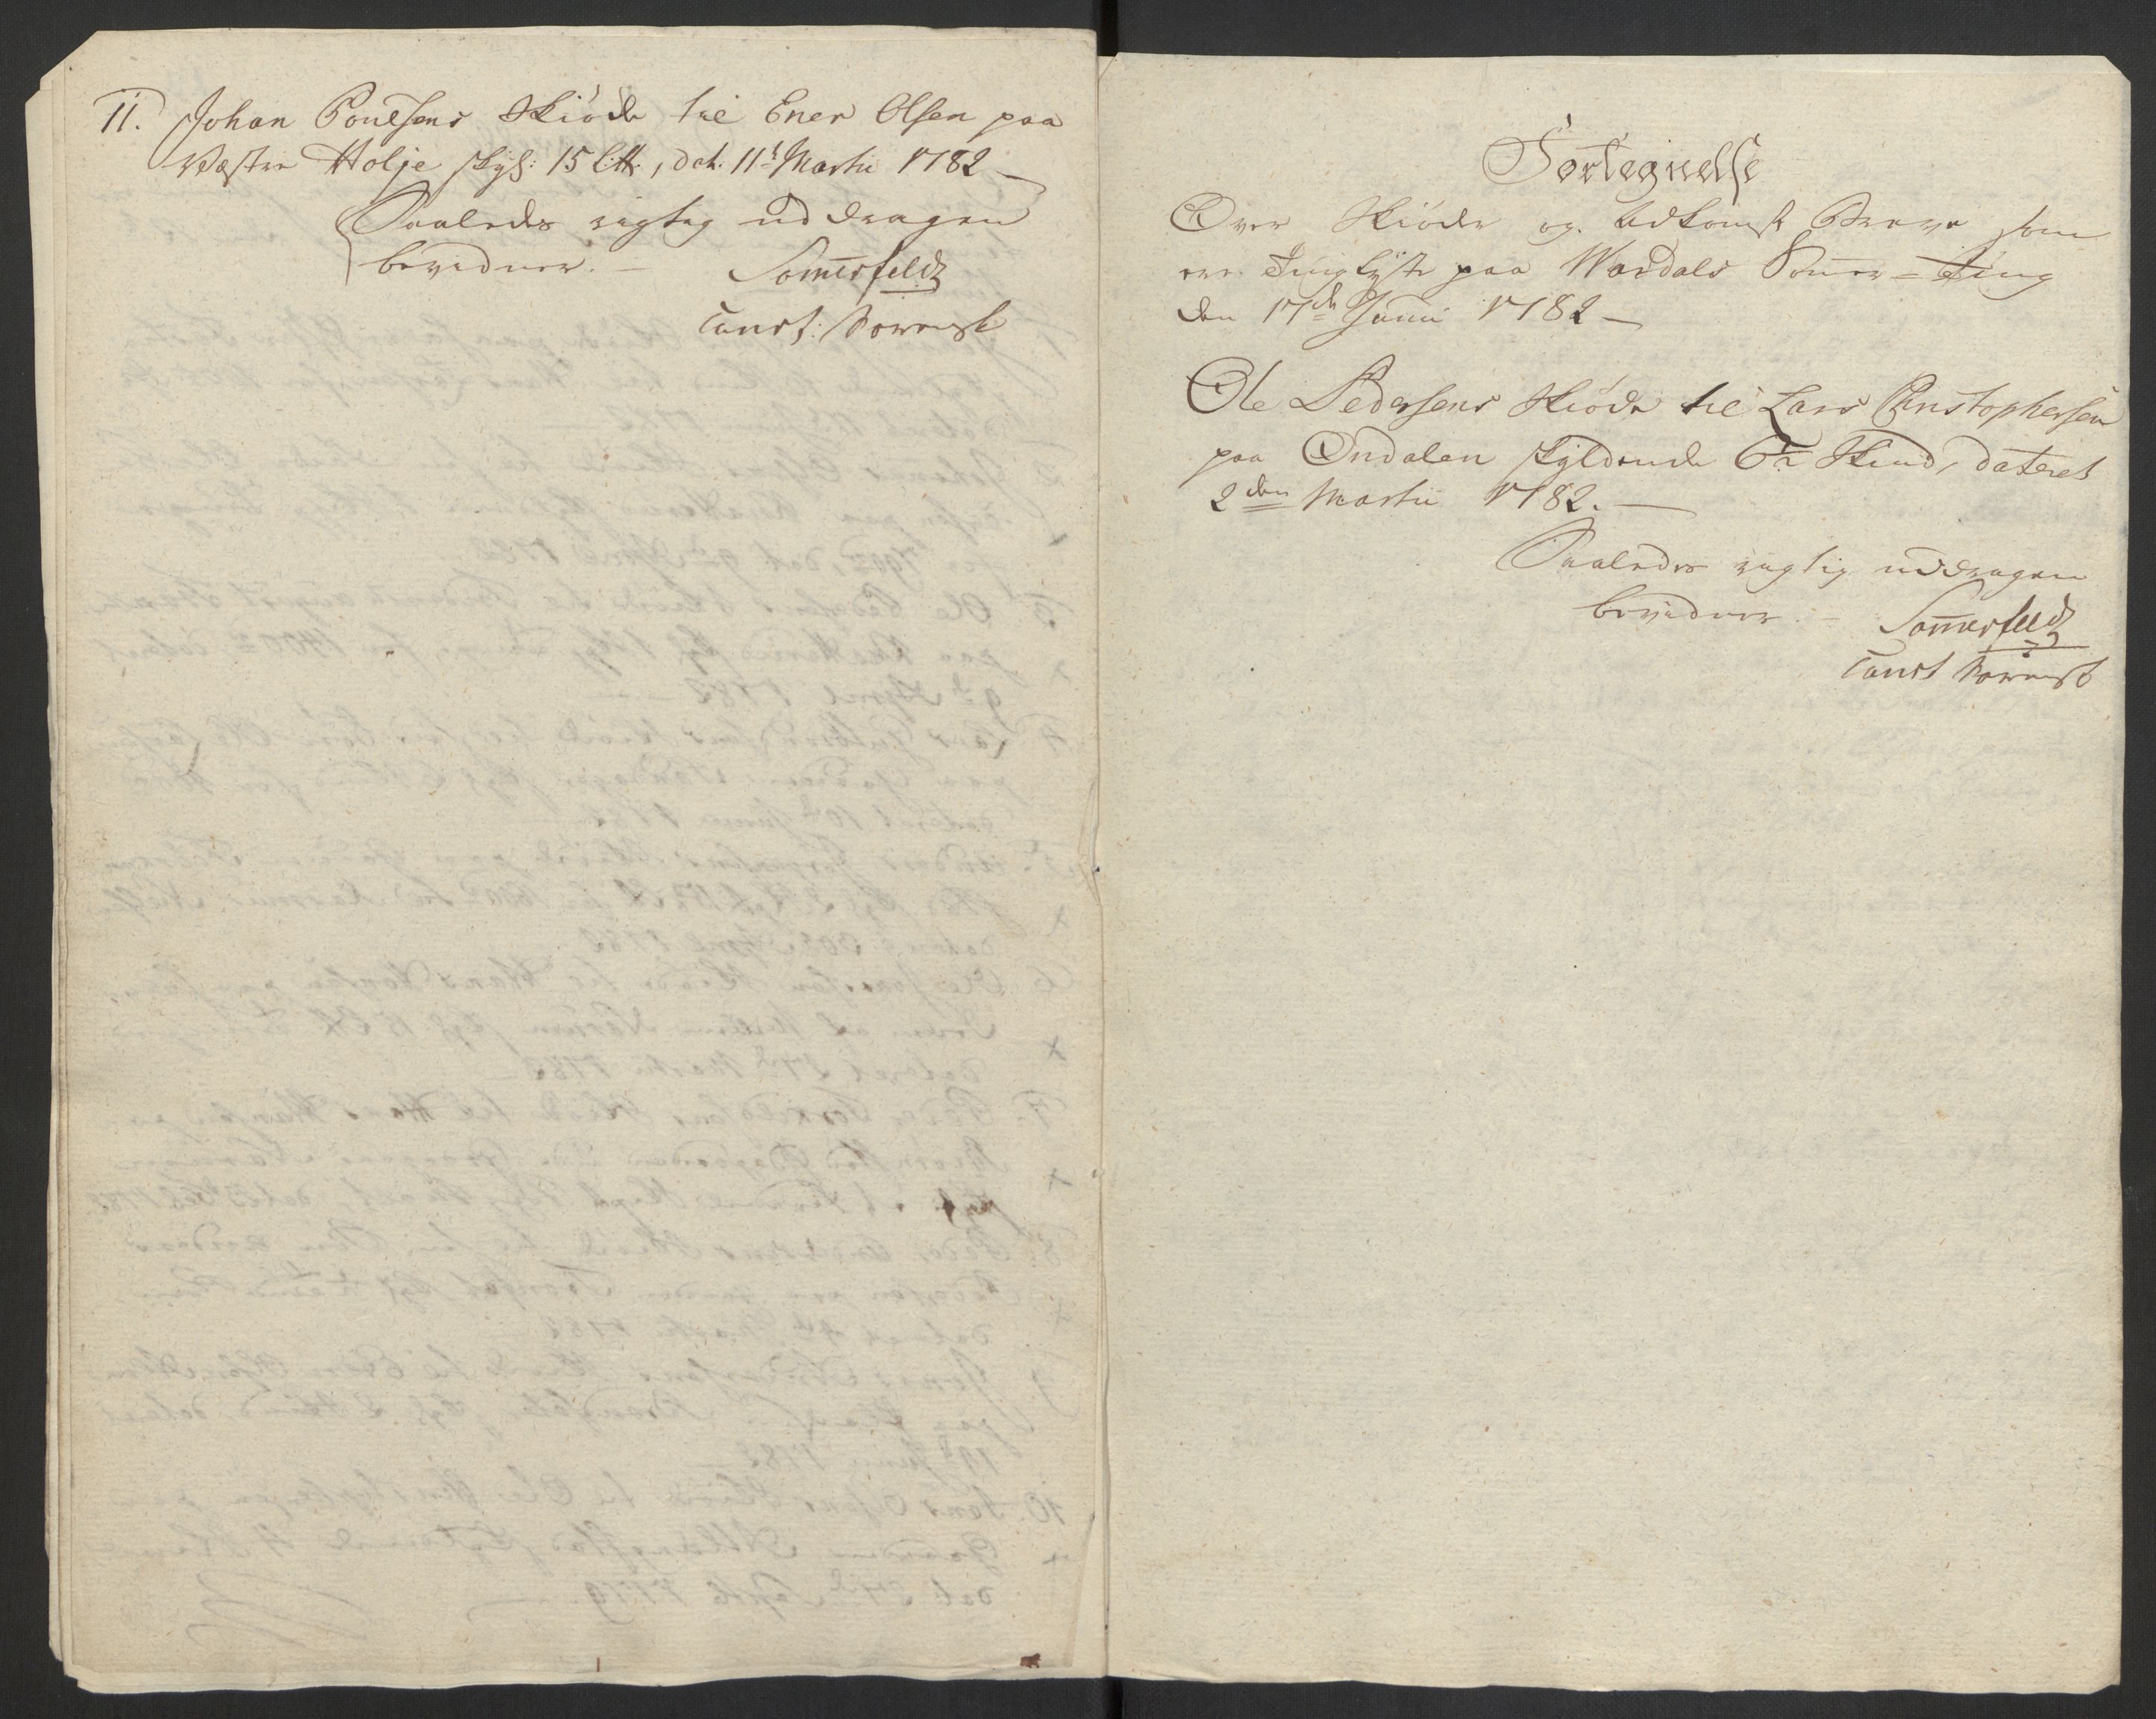 11. Johan Poulsens Skiöde til Ener Olsen paa
Vestre Holje skyl: 15 Ltt., dat. 11t Martii 1782 —
Saaledes rigtig uddragen
bevidner. — Somerfeldt
Const: Sorensk
Fortegnelse
Over Skiöde og Adkomst Breve som
ere Tinglyste paa Wardals Somer=Ting
den 17de Junii 1782 —
Ole Pedersens Skiöde til Lars Christophersen
paa Ondalen skyldende Skind, dateret
2den Martii 1782. —
Saaledes rigtig uddragen
bevidner. — Somerfeldt
Const Sorensk